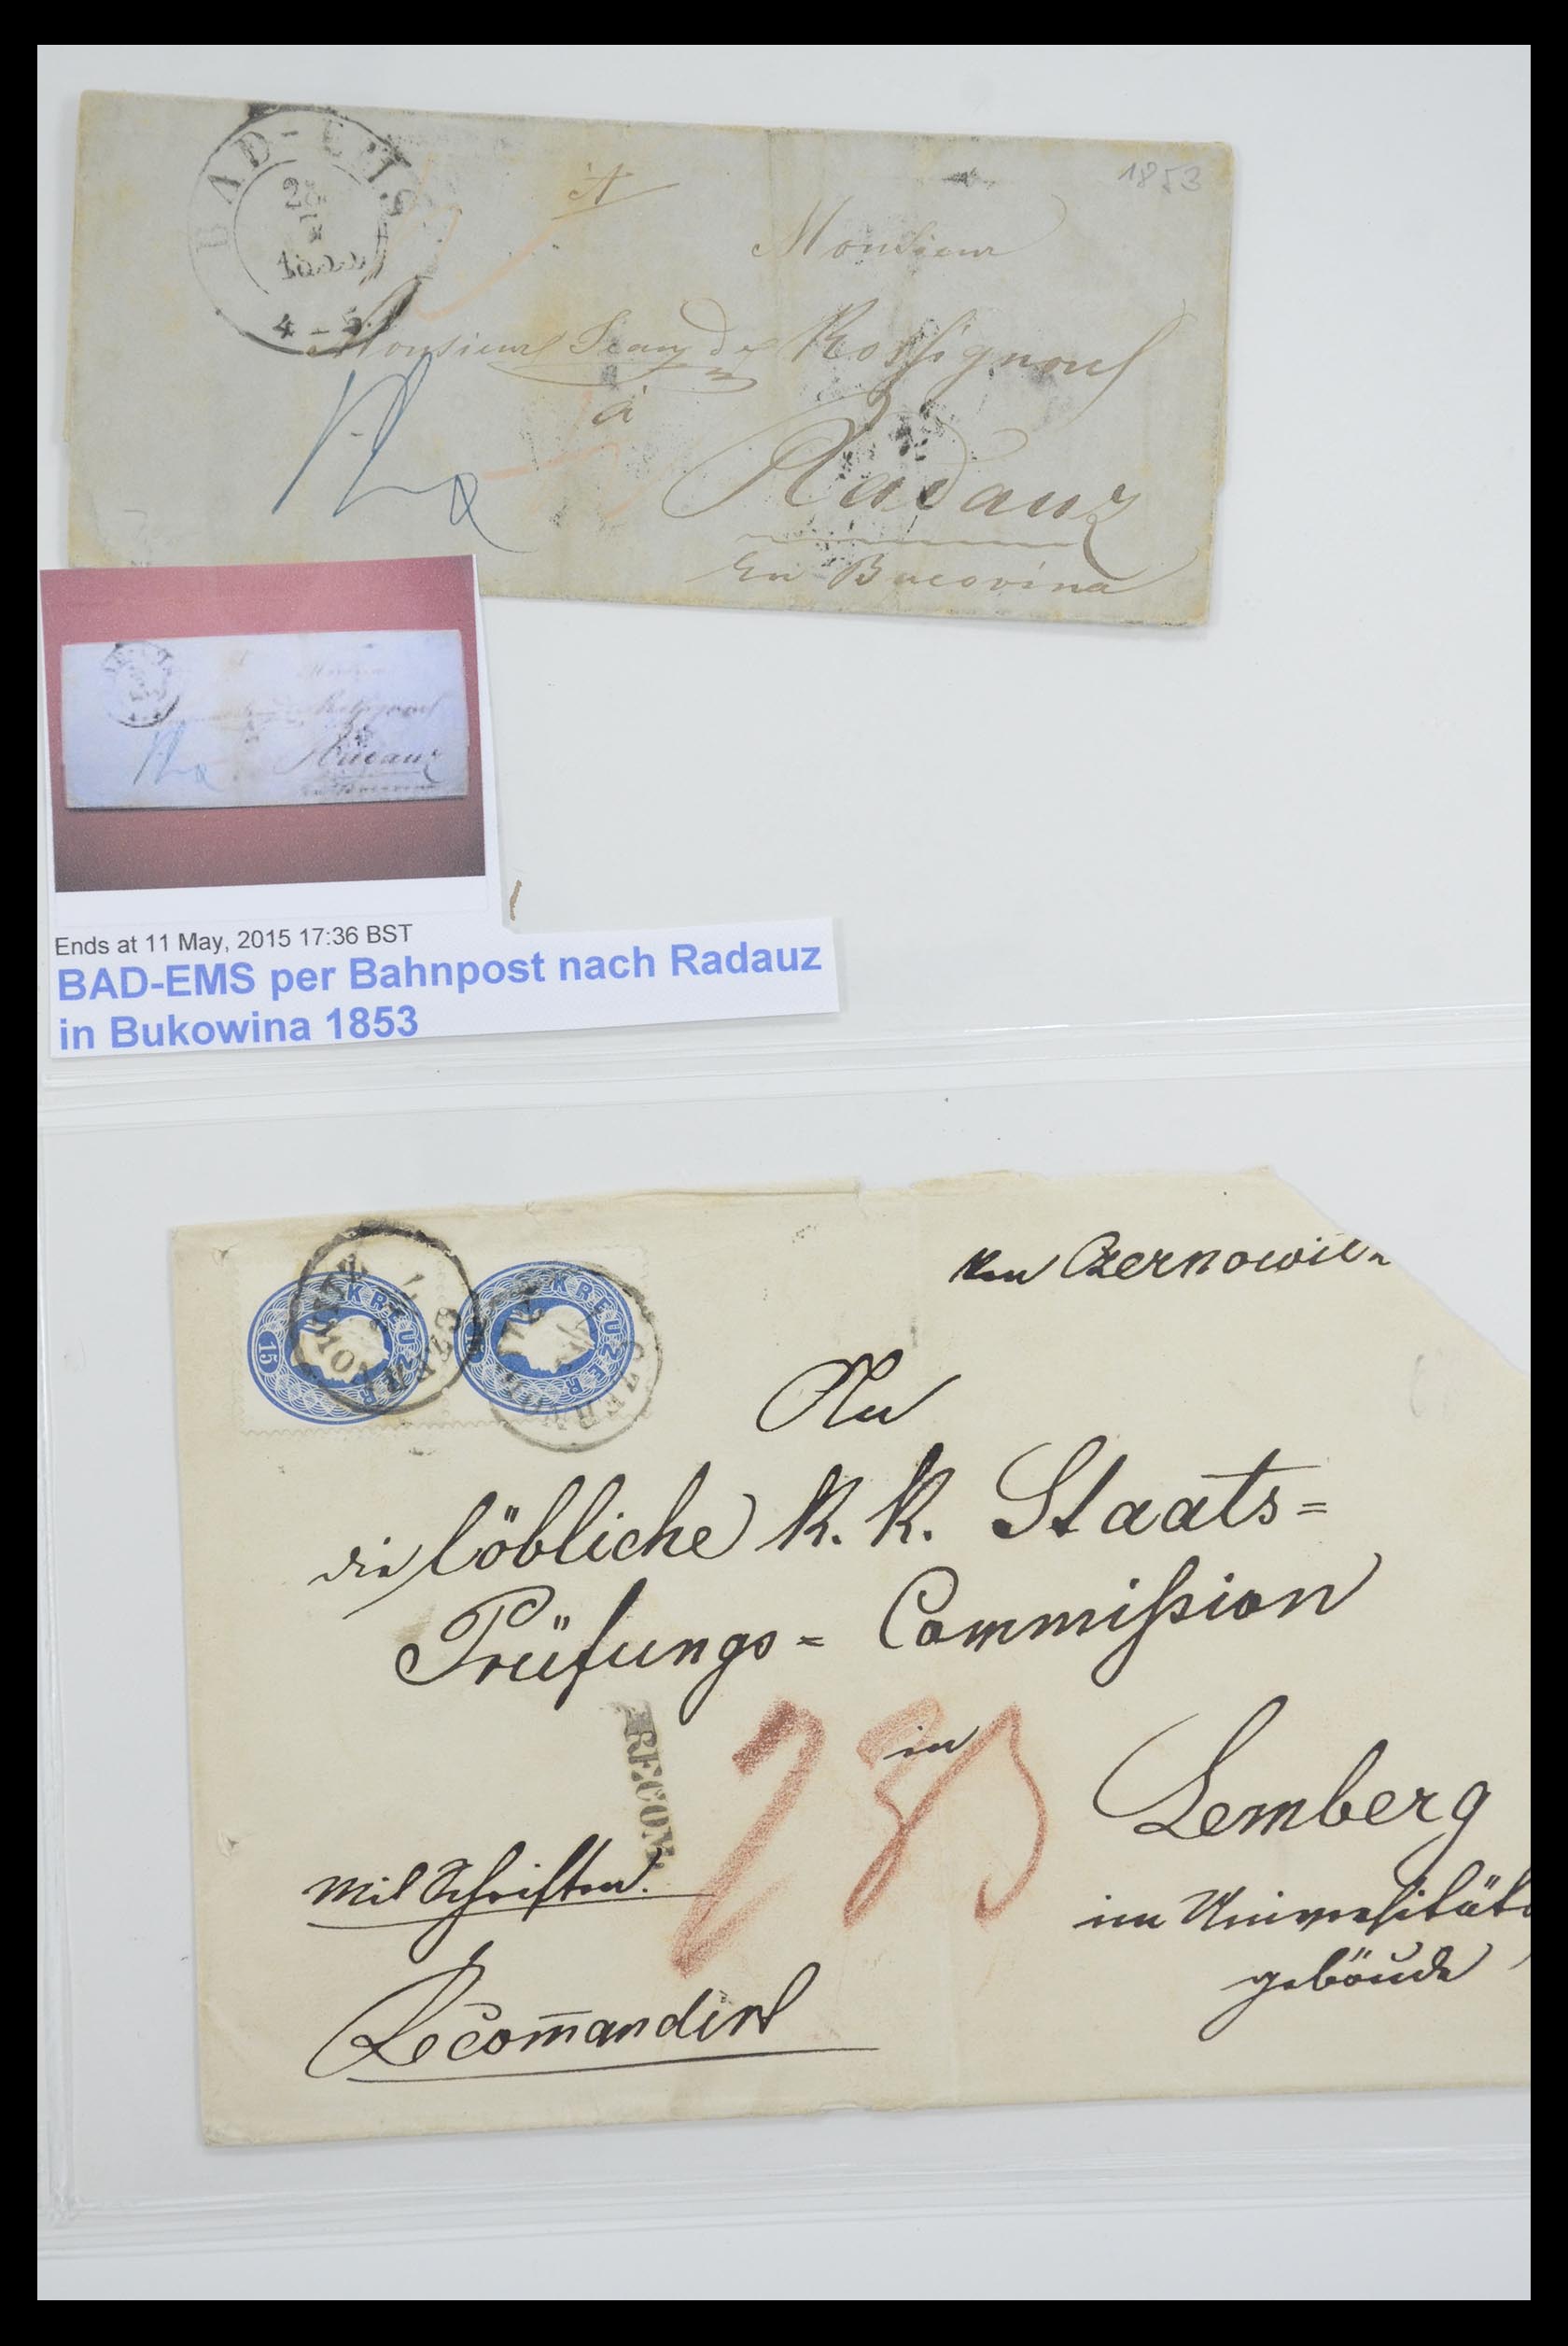 BAD-EMS
4 - 5
1853
A
Monsieur
Monsieur Jean de Rossignouf
à
Radauz
En Bucovina
Ends at 11 May, 2015 17:36 BST
BAD-EMS per Bahnpost nach Radauz
in Bukowina 1853
KREUZER
15
KREUZER
CZERNOWITZ
CZERNOWITZ
An
die löbliche k. k. Staats=
Prüfungs= Commißion
in
Lemberg
im Universitäts
gebäude
RECOM.
Mit Schriften.
Recom̄andirt